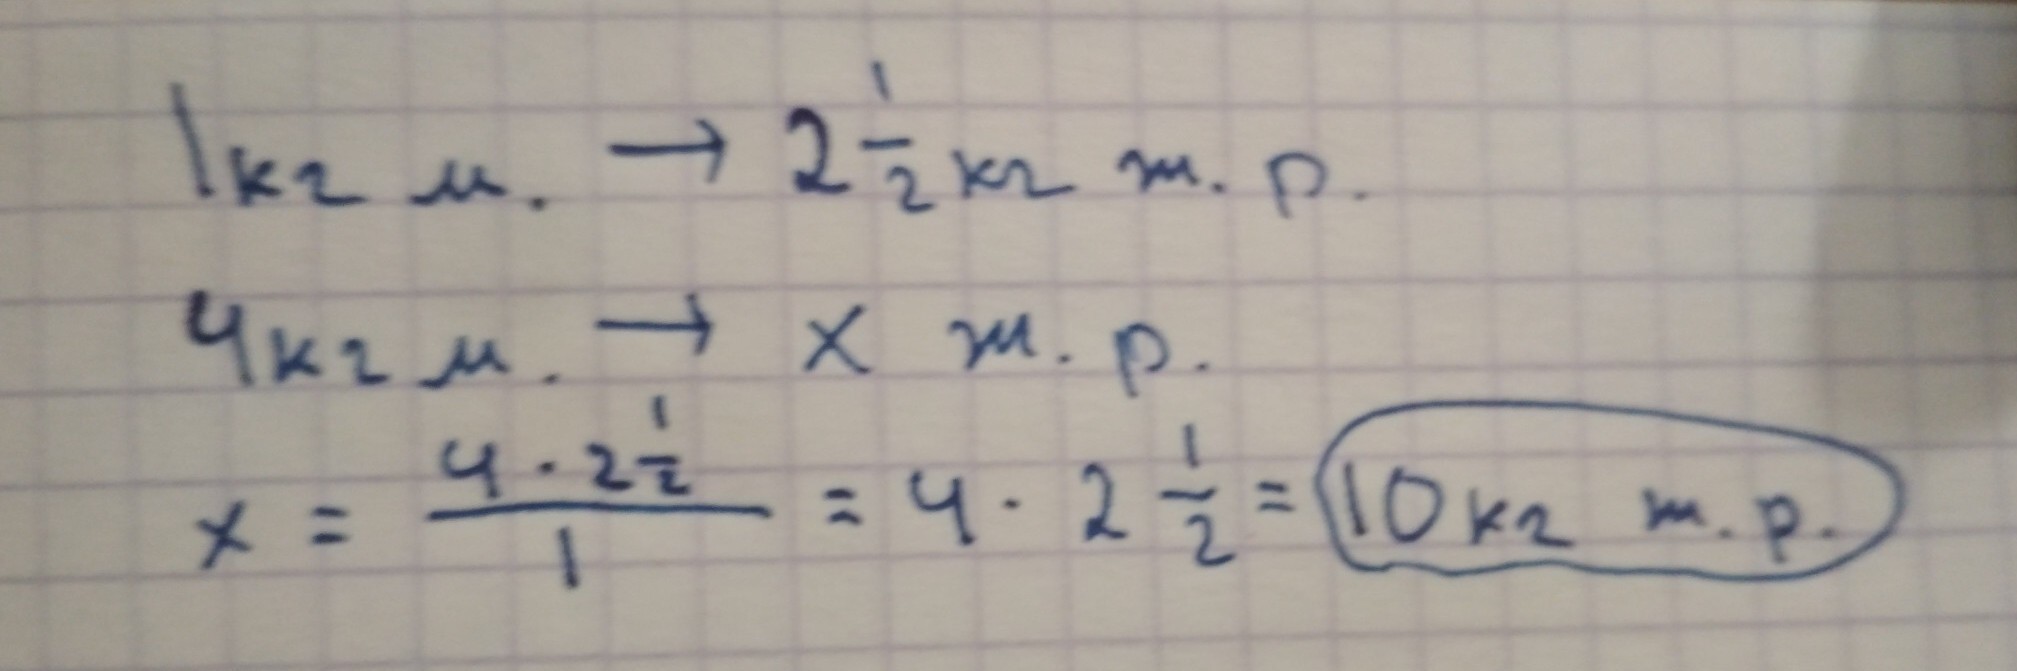 1кг м. → 2 1/2 кг т. р.
4кг м. → x т. р.
x = (4 · 2 1/2)/1 = 4 · 2 1/2 = 10кг т. р.